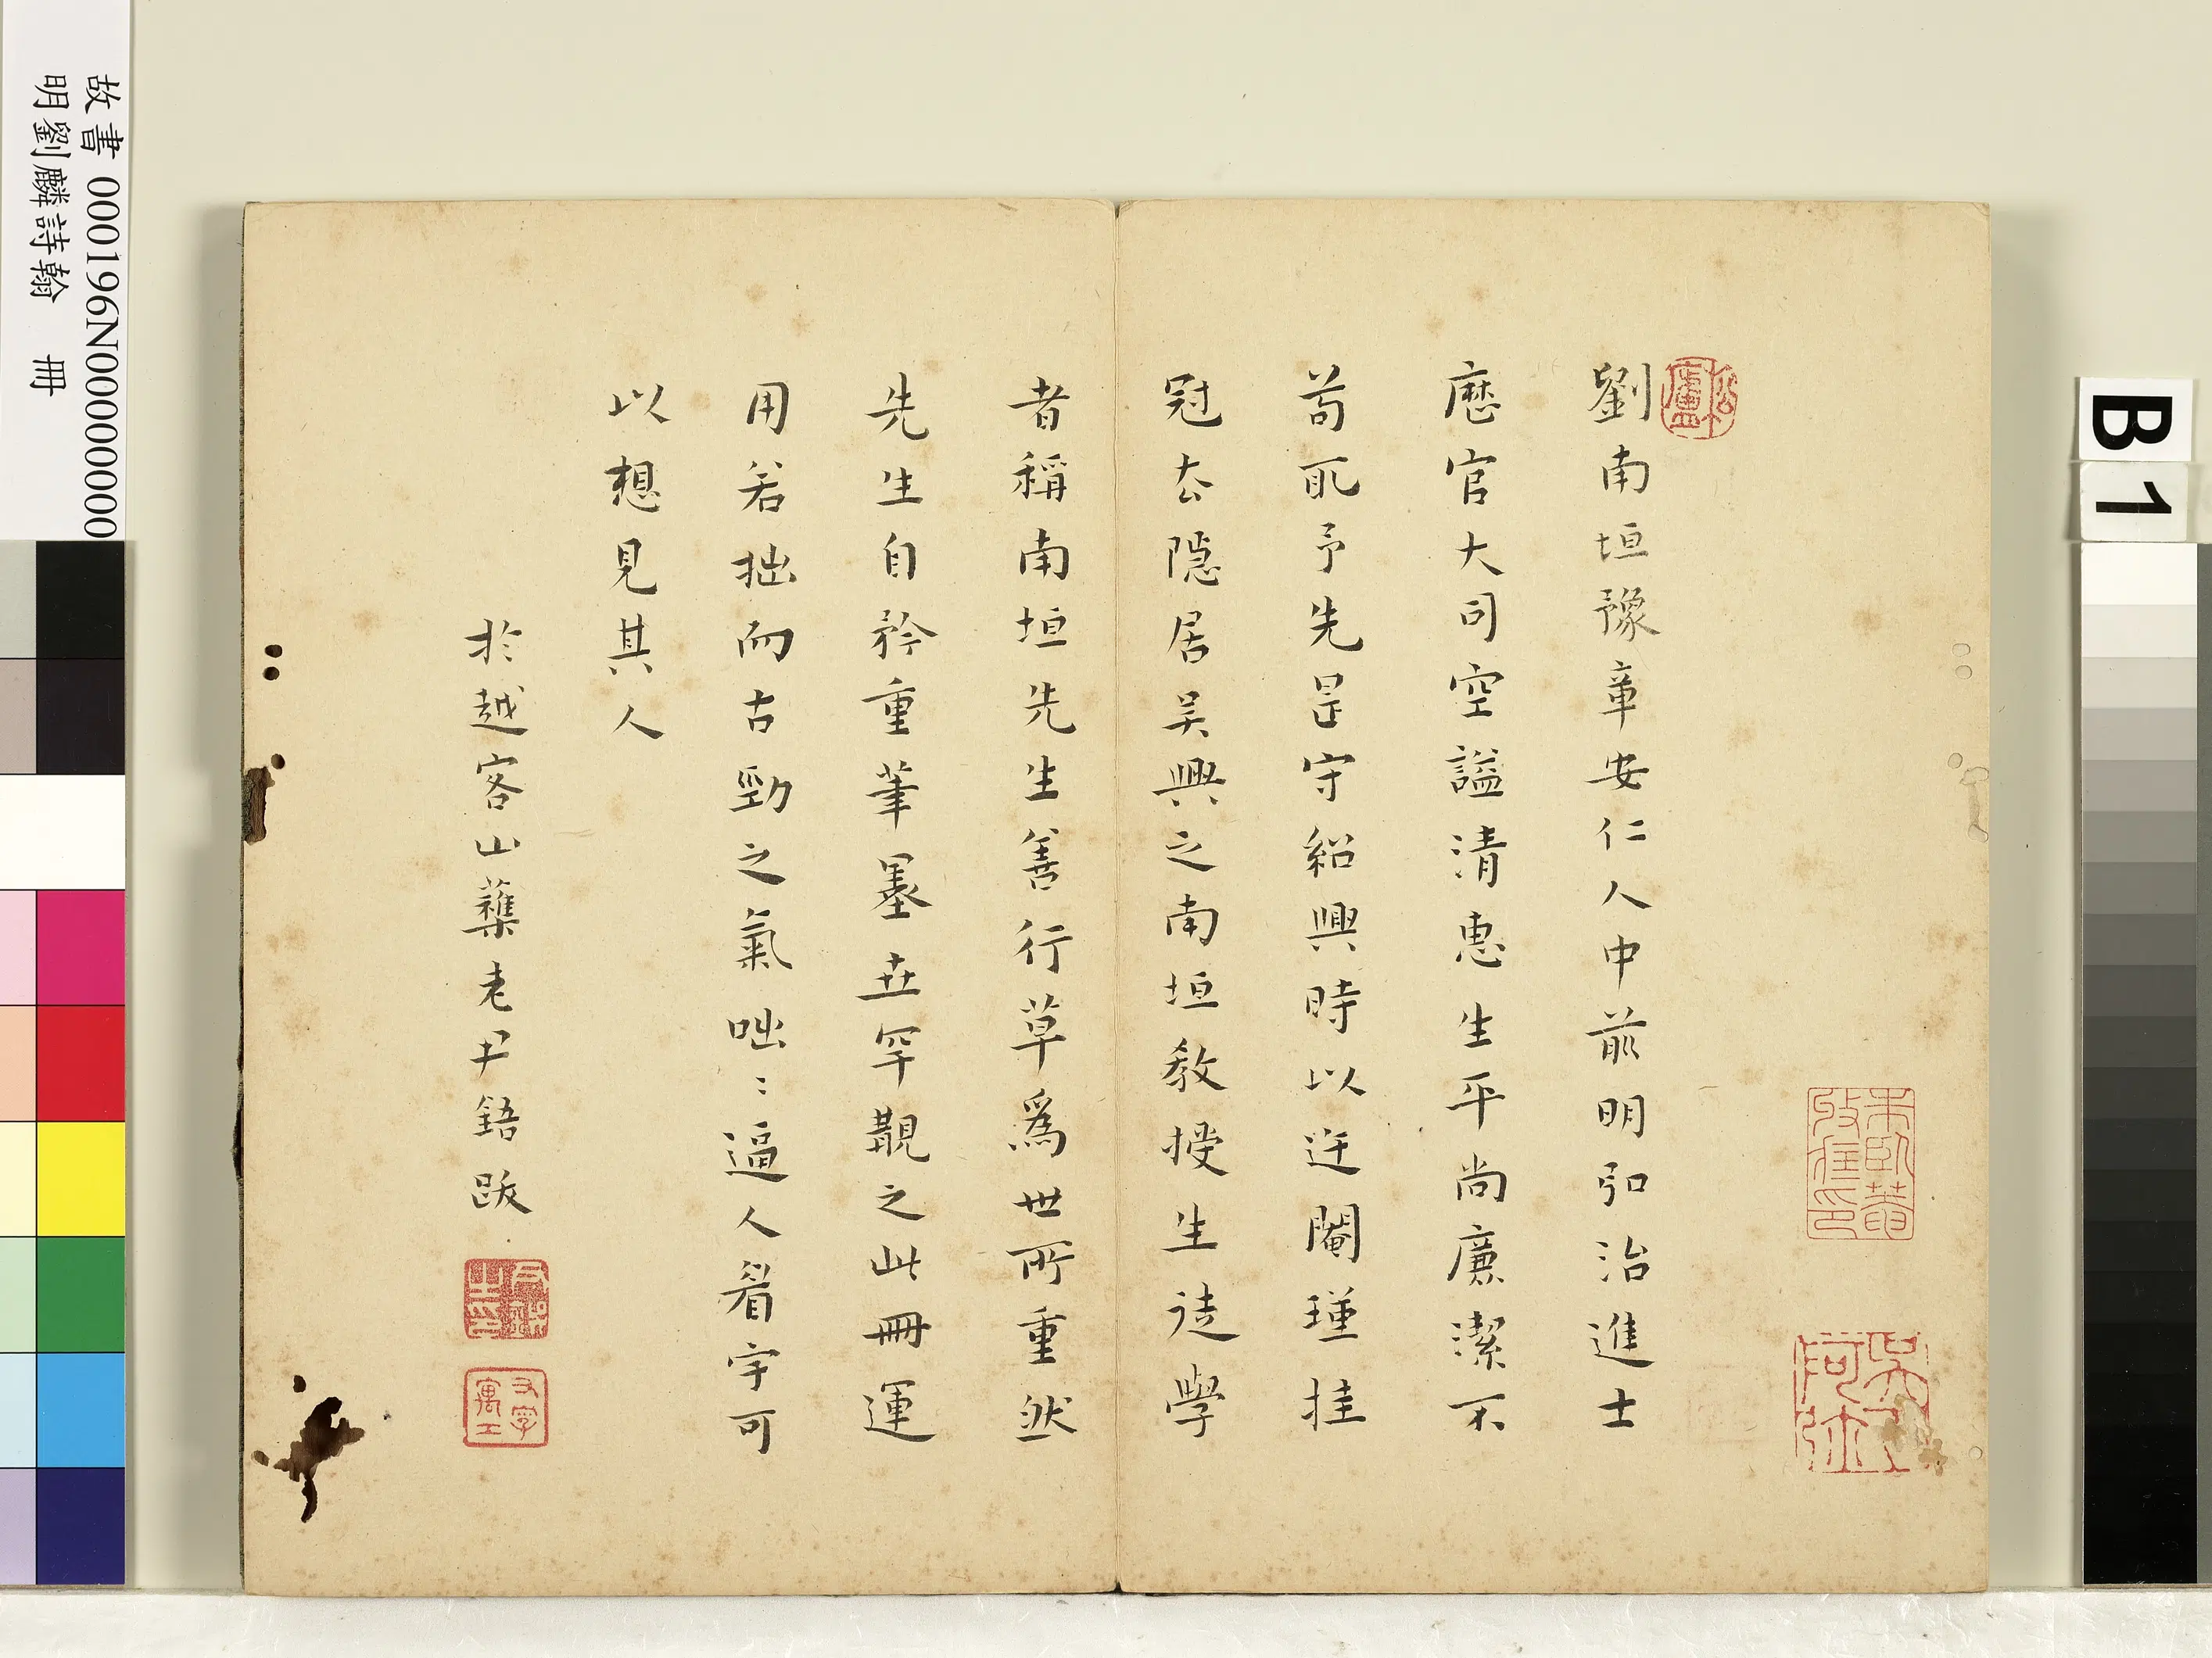 劉南垣豫章安仁人中前明弘治進士
歷官大司空謚清惠生平尚廉潔不
苟取予先是守紹興時以迕閹瑾挂
冠去隱居吴興之南垣教授生徒學
者稱南垣先生善行草為世所重然
先生自矜重筆墨世罕覯之此冊運
用若拙而古勁之氣咄〻逼人看字可
以想見其人
於越客山蘿老尹鋙跋
故書 000196N000000000
明劉麟詩翰 冊
B1